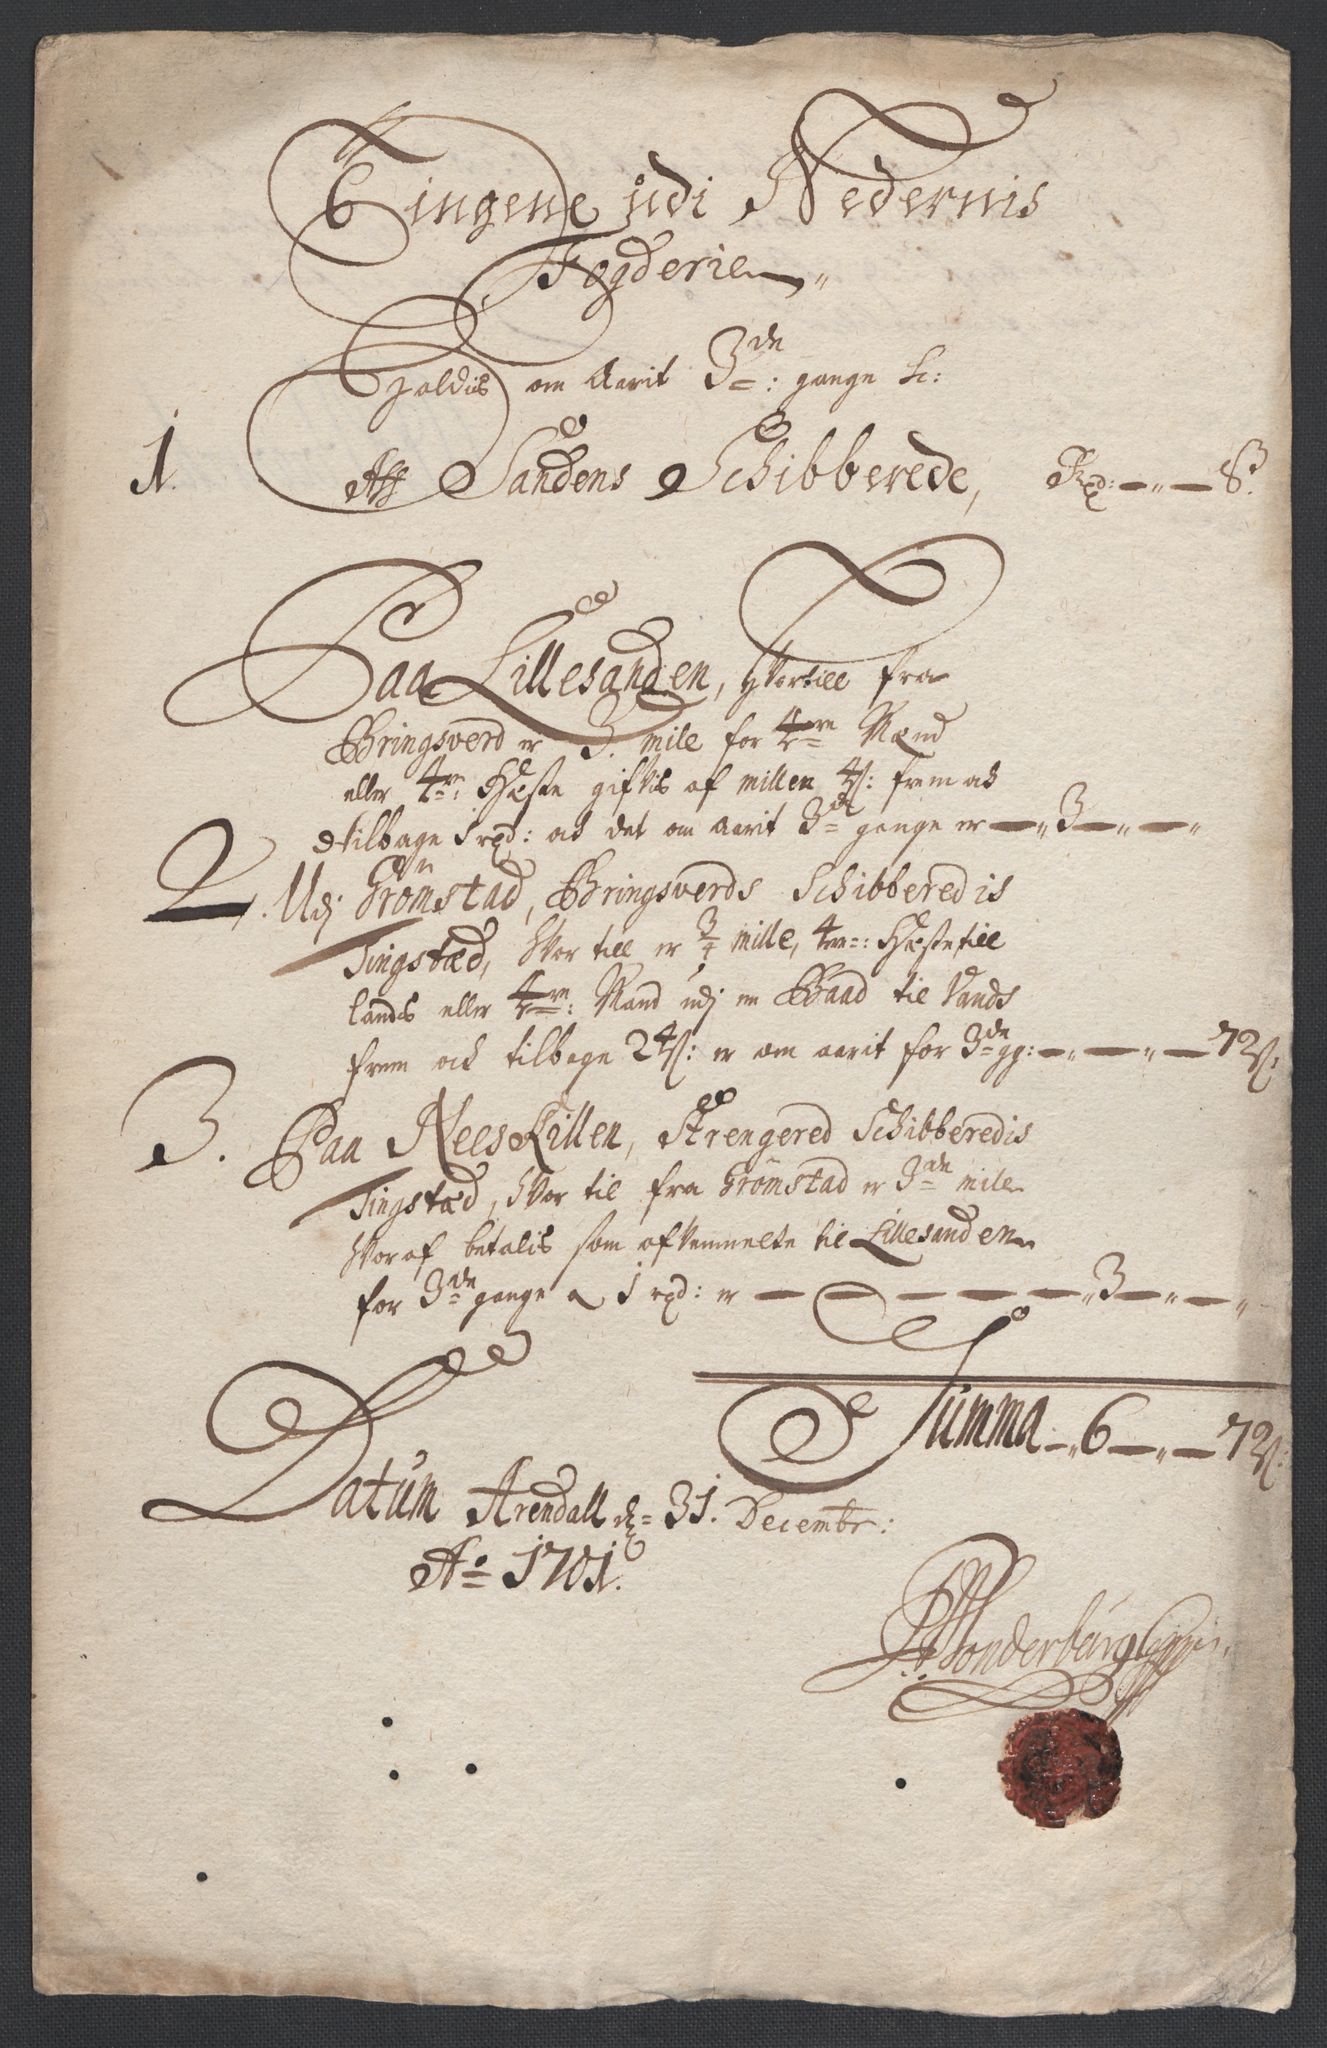 Tingene udi Nedernis
Fogderie
Holdis om Aarit 3de: gange &c:
1. Aff Sandens Schibberede, Rxd: — " — ß
Paa Lillesanden, Hvortill fra
Bringsverd er 3. mile for 4re Mænd
eller 4re: Hæste gifvis af millen 4ß: frem och
tilbage 1 rxd: och det om aarit 3de gange er — " 3 — " — "
2. Udj Grömstad, Bringsverds Schibberedis
Tingstæd, hvor till er 3/4 mille, 4re: Hæste till
lands eller 4re: Mand udj en Baad til Vands
frem och tilbage 24ß: er om aarit for 3de gg: — " — " — 72ß:
3. Paa NeesKillen, Strengered Schibberedis
Tingstæd, hvor til fra Grömstad er 3de mile
hvor af betalis som ofvenmelte til Lillesanden
for 3de gange a 1 rxd: er — — — — — " 3 — " — "
Summa — " 6 — " — 72ß:
Datum Arendall d= 31. Decembr:
Ao 1701.